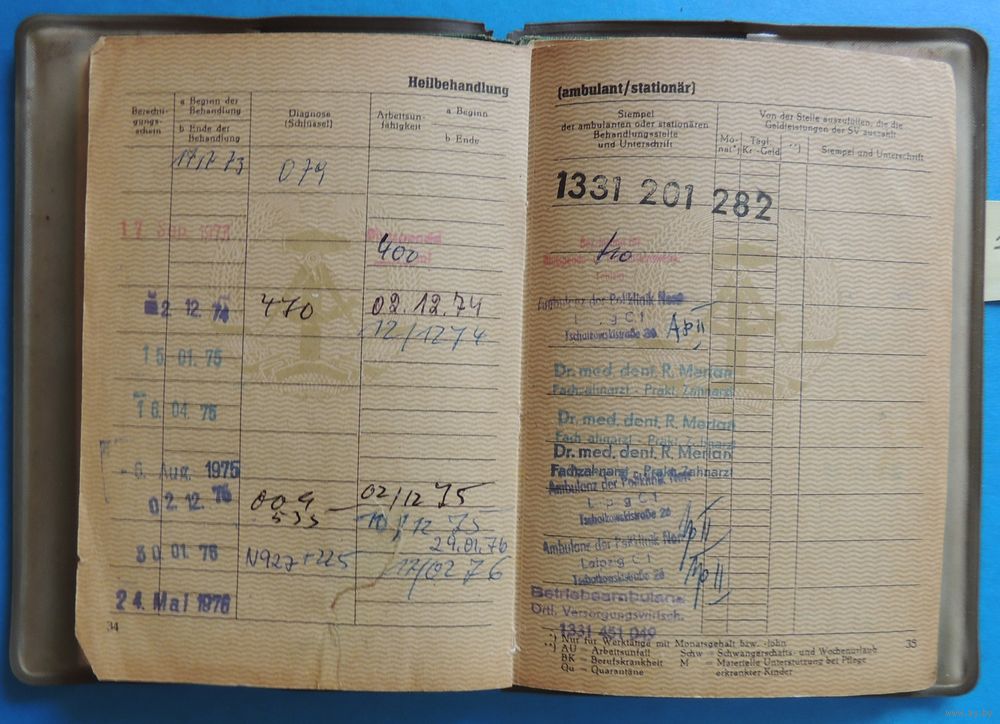 Heilbehandlung
Berechti-
gungs-
schein
a Beginn der
Behandlung
b Ende der
Behandlung
Diagnose
(Schlüssel)
Arbeitsun-
fähigkeit
a Beginn
b Ende
079
17 Sep. 1973
400
2. 12. 74
470
02.12.74
12/12 74
15. 01. 75
16. 04. 75
- 6. Aug. 1975
02. 12. 75
009
02/12 75
533
10/12 75
29.01.76
30. 01. 76
N927+225
17/02 76
24. Mai 1976
34
(ambulant/stationär)
Stempel
der ambulanten oder stationären
Behandlungsstelle
und Unterschrift
Von der Stelle auszufüllen, die die
Geldleistungen der SV auszahlt
Mo-
nat*)
Tägl.
Kr.-Geld
**)
Stempel und Unterschrift
1331 201 282
Ambulanz der Poliklinik Nord
Leipzig C 1
Tschaikowskistraße
Dr. med. dent. R. Merian
Fachzahnarzt - Prakt. Zahnarzt
Dr. med. dent. R. Merian
Fachzahnarzt - Prakt. Zahnarzt
Dr. med. dent. R. Merian
Fachzahnarzt - Prakt. Zahnarzt
Ambulanz der Poliklinik Nord
Leipzig C 1
Tschaikowskistraße
Ambulanz der Poliklinik Nord
Leipzig C 1
Tschaikowskistraße
Betriebsambulanz
Örtl. Versorgungswirtsch.
1331 451 049
*) Nur für Werktätige mit Monatsgehalt bzw. -lohn
**) AU = Arbeitsunfall
BK = Berufskrankheit
Qu = Quarantäne
Schw = Schwangerschafts- und Wochenurlaub
M = Materielle Unterstützung bei Pflege
erkrankter Kinder
35